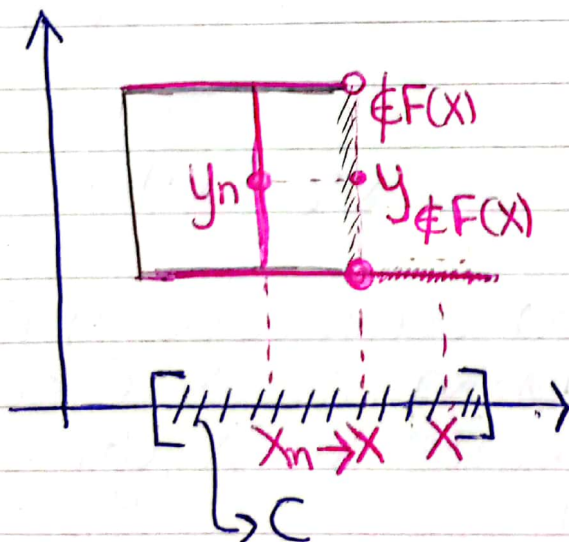 ∉F(X)
yn
y ∉F(X)
Xn→X X
C